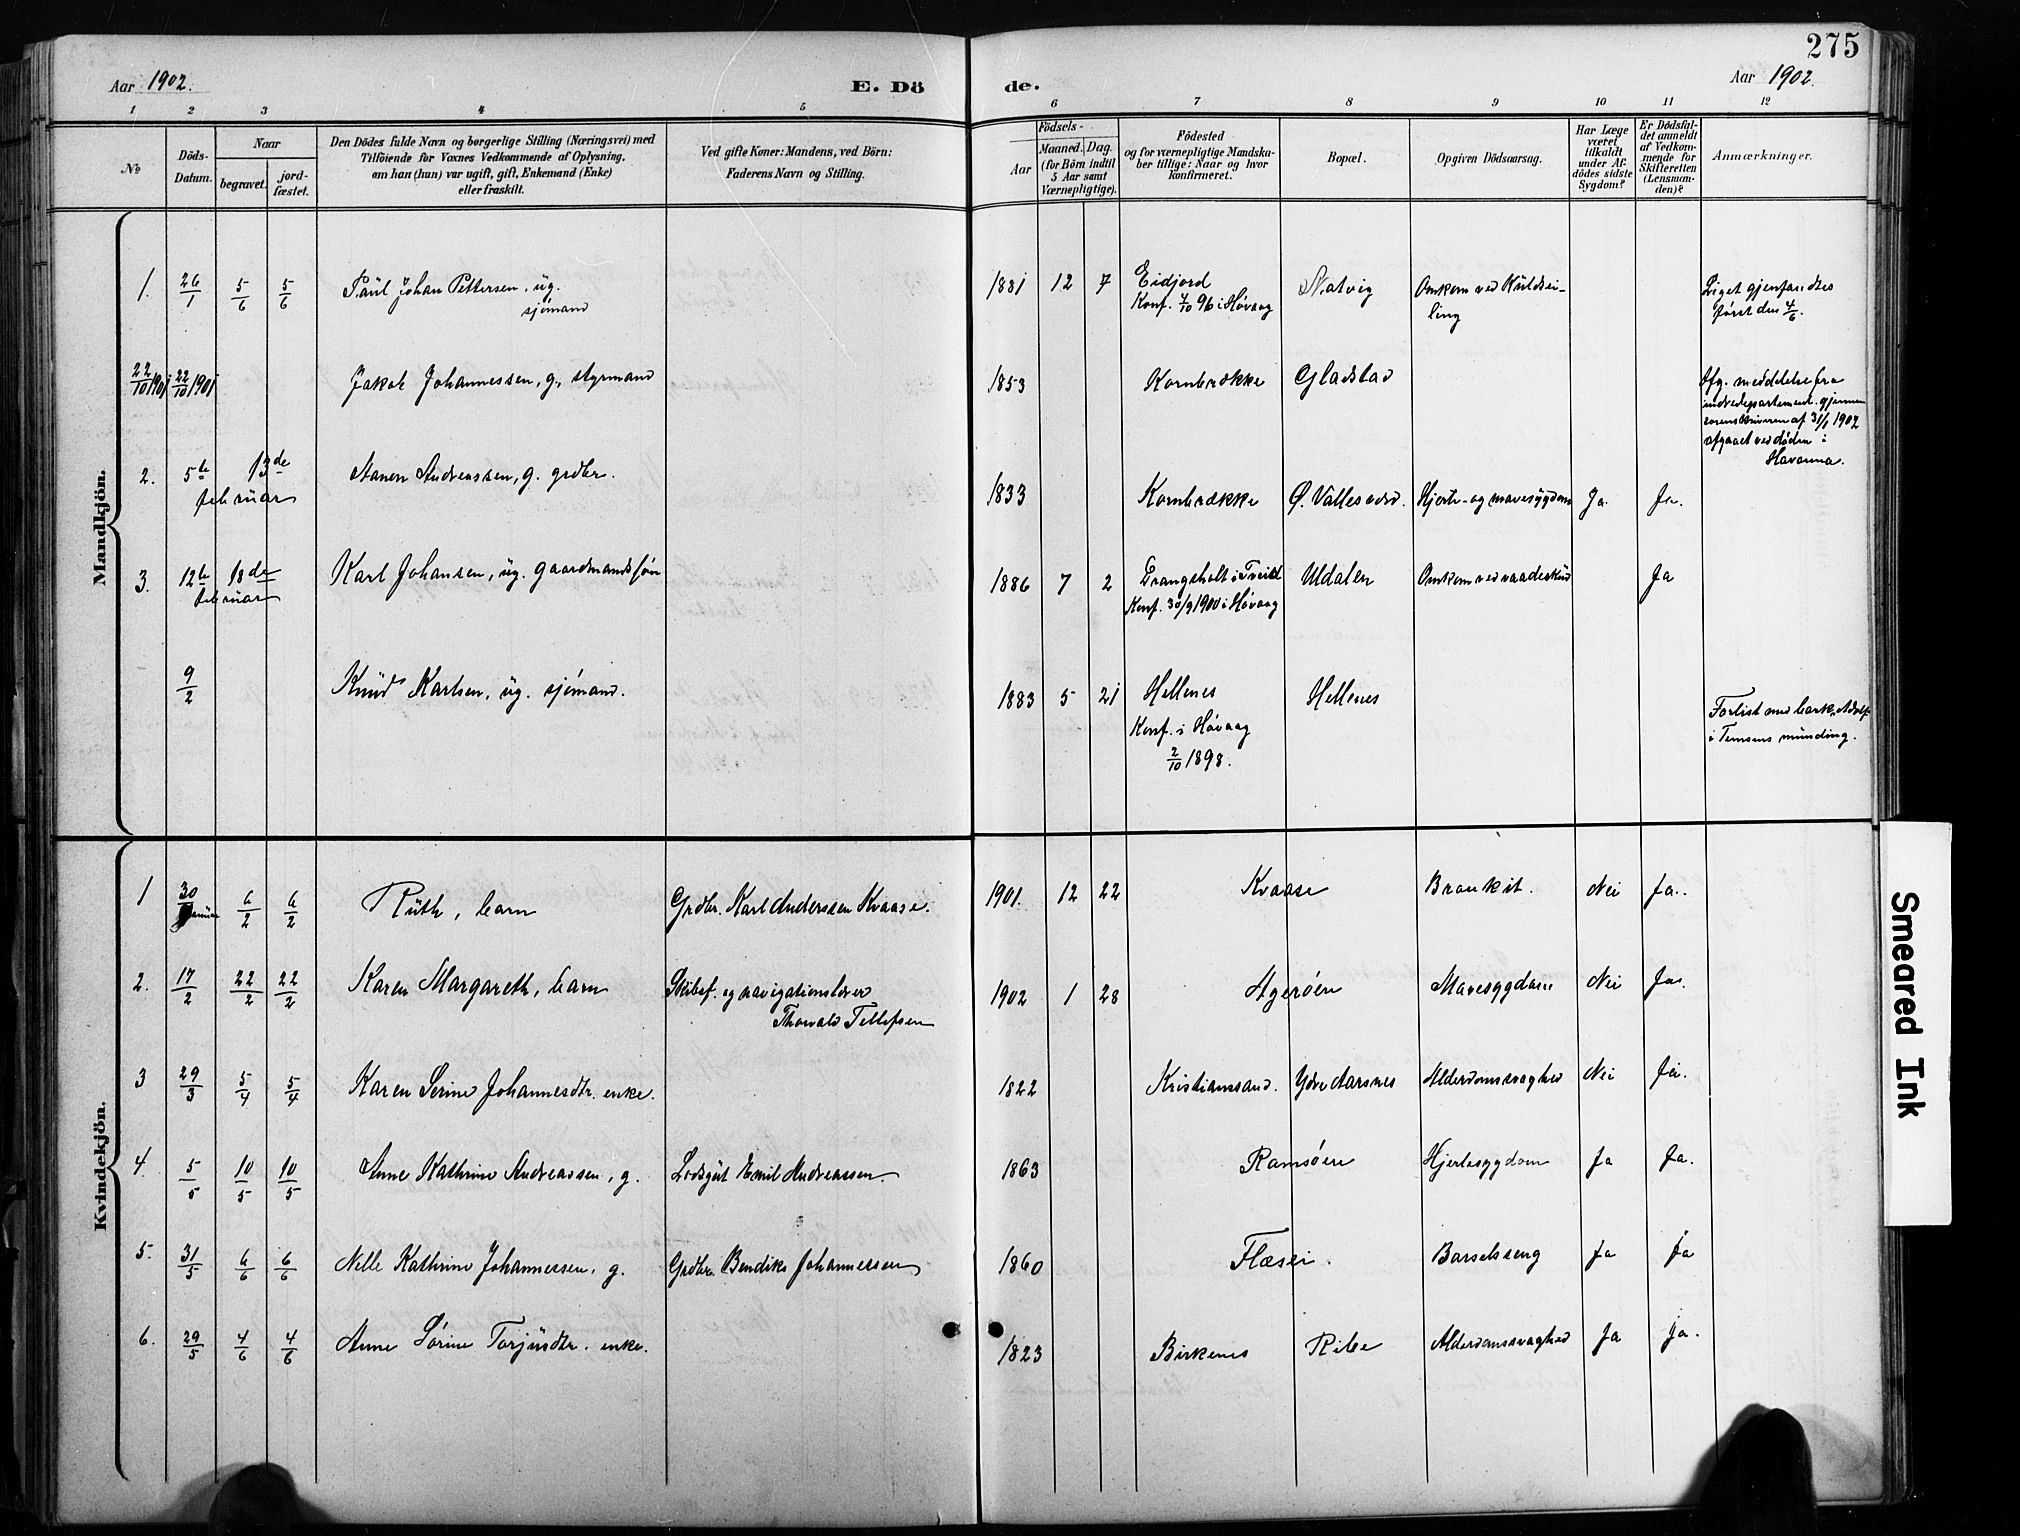 275
Aar 1902.
E. Dö
de.
Aar 1902.
1 2 3 4 5 6 7 8 9 10 11 12
№
Döds-
Datum.
Naar
begravet.
jord-
fæstet.
Den Dödes fulde Navn og borgerlige Stilling (Næringsvei) med
Tilföiende for Voxnes Vedkommende af Oplysning,
om han (hun) var ugift, gift, Enkemand (Enke)
eller fraskilt.
Ved gifte Koner: Mandens, ved Börn:
Faderens Navn og Stilling.
Födsels-
Aar
Maaned. Dag.
(for Börn indtil
5 Aar samt
Værnepligtige).
Födested
og for værnepligtige Mandska-
ber tillige: Naar og hvor
konfirmeret.
Bopæl.
Opgiven Dödsaarsag.
Har Læge
været
tilkaldt
under Af-
dödes sidste
Sygdom?
Er Dödsfal-
det anmeldt
af Vedkom-
mende for
Skifteretten
(Lensman-
den)?
Anmærkninger.
Mandkjön.
1. 26/1 5/6 5/6 Paul Johan Pettersen, ug. 1881 12 7 Eidjord Natvig Omkom ved Kuldsei- Liget gjenfandtes
sjømand Konf. 4/10 96 i Høvaag ling først den 4/6.
22/10 1901 22/10 1901 Jakob Johannessen, g., styrmand 1853 Kornbrække Gladstad Ifg. meddelelse fra
indredepartement. gjennem
sorenskriveren af 31/1 1902
afgaaet ved døden i
Havanna.
2. 5te 13de Aanen Andreassen, g. grdbr. 1833 Kornbrække Ø. Vallesverd. Hjerte- og mavesygdom Ja. Ja.
februar
3. 12te 18de Karl Johansen, ug. gaardmandssøn 1886 7 2 Drangsholt i Tveid Udalen Omkom ved vaadeskud Ja
februar Konf. 30/9 1900 i Høvaag
9/2 Knud Karlsen, ug. sjømand. 1883 5 21 Hellenes Hellenes Forlist med bark. Adolf
Konf. i Høvaag i Temsens munding.
2/10 1898.
Kvindekjön.
1 30/januar 6/2 6/2 Ruth, barn Grdbr. Karl Anderssen Kvaase. 1901. 12 22 Kvaase Bronkit. Nei Ja.
2. 17/2 22/2 22/2 Karen Margareth, barn Skibsf. og navigationslærer 1902 1 28 Agerøen Mavesygdom Nei Ja.
Thorvald Tellefsen
3 29/3 5/4 5/4 Karen Serine Johannesdtr. enke. 1822 Kristianssand. Ydre Aarsnes Alderdomssvaghed Nei Ja.
4. 5/5 10/5 10/5 Anne Kathrine Andreassen, g. Lodsgut Emil Andreassen. 1863 Ramsøen Hjertesygdom Ja Ja.
5. 31/5 6/6 6/6 Nelle Kathrine Johannessen, g. Grdbr. Bendiks Johannessen 1860 Flæsei. Barselseng Ja Ja
6. 29/5 4/6 4/6 Anne Sørine Torjusdtr. enke. 1823 Birkenes Ribe Alderdomssvaghed Ja Ja.
Smeared Ink